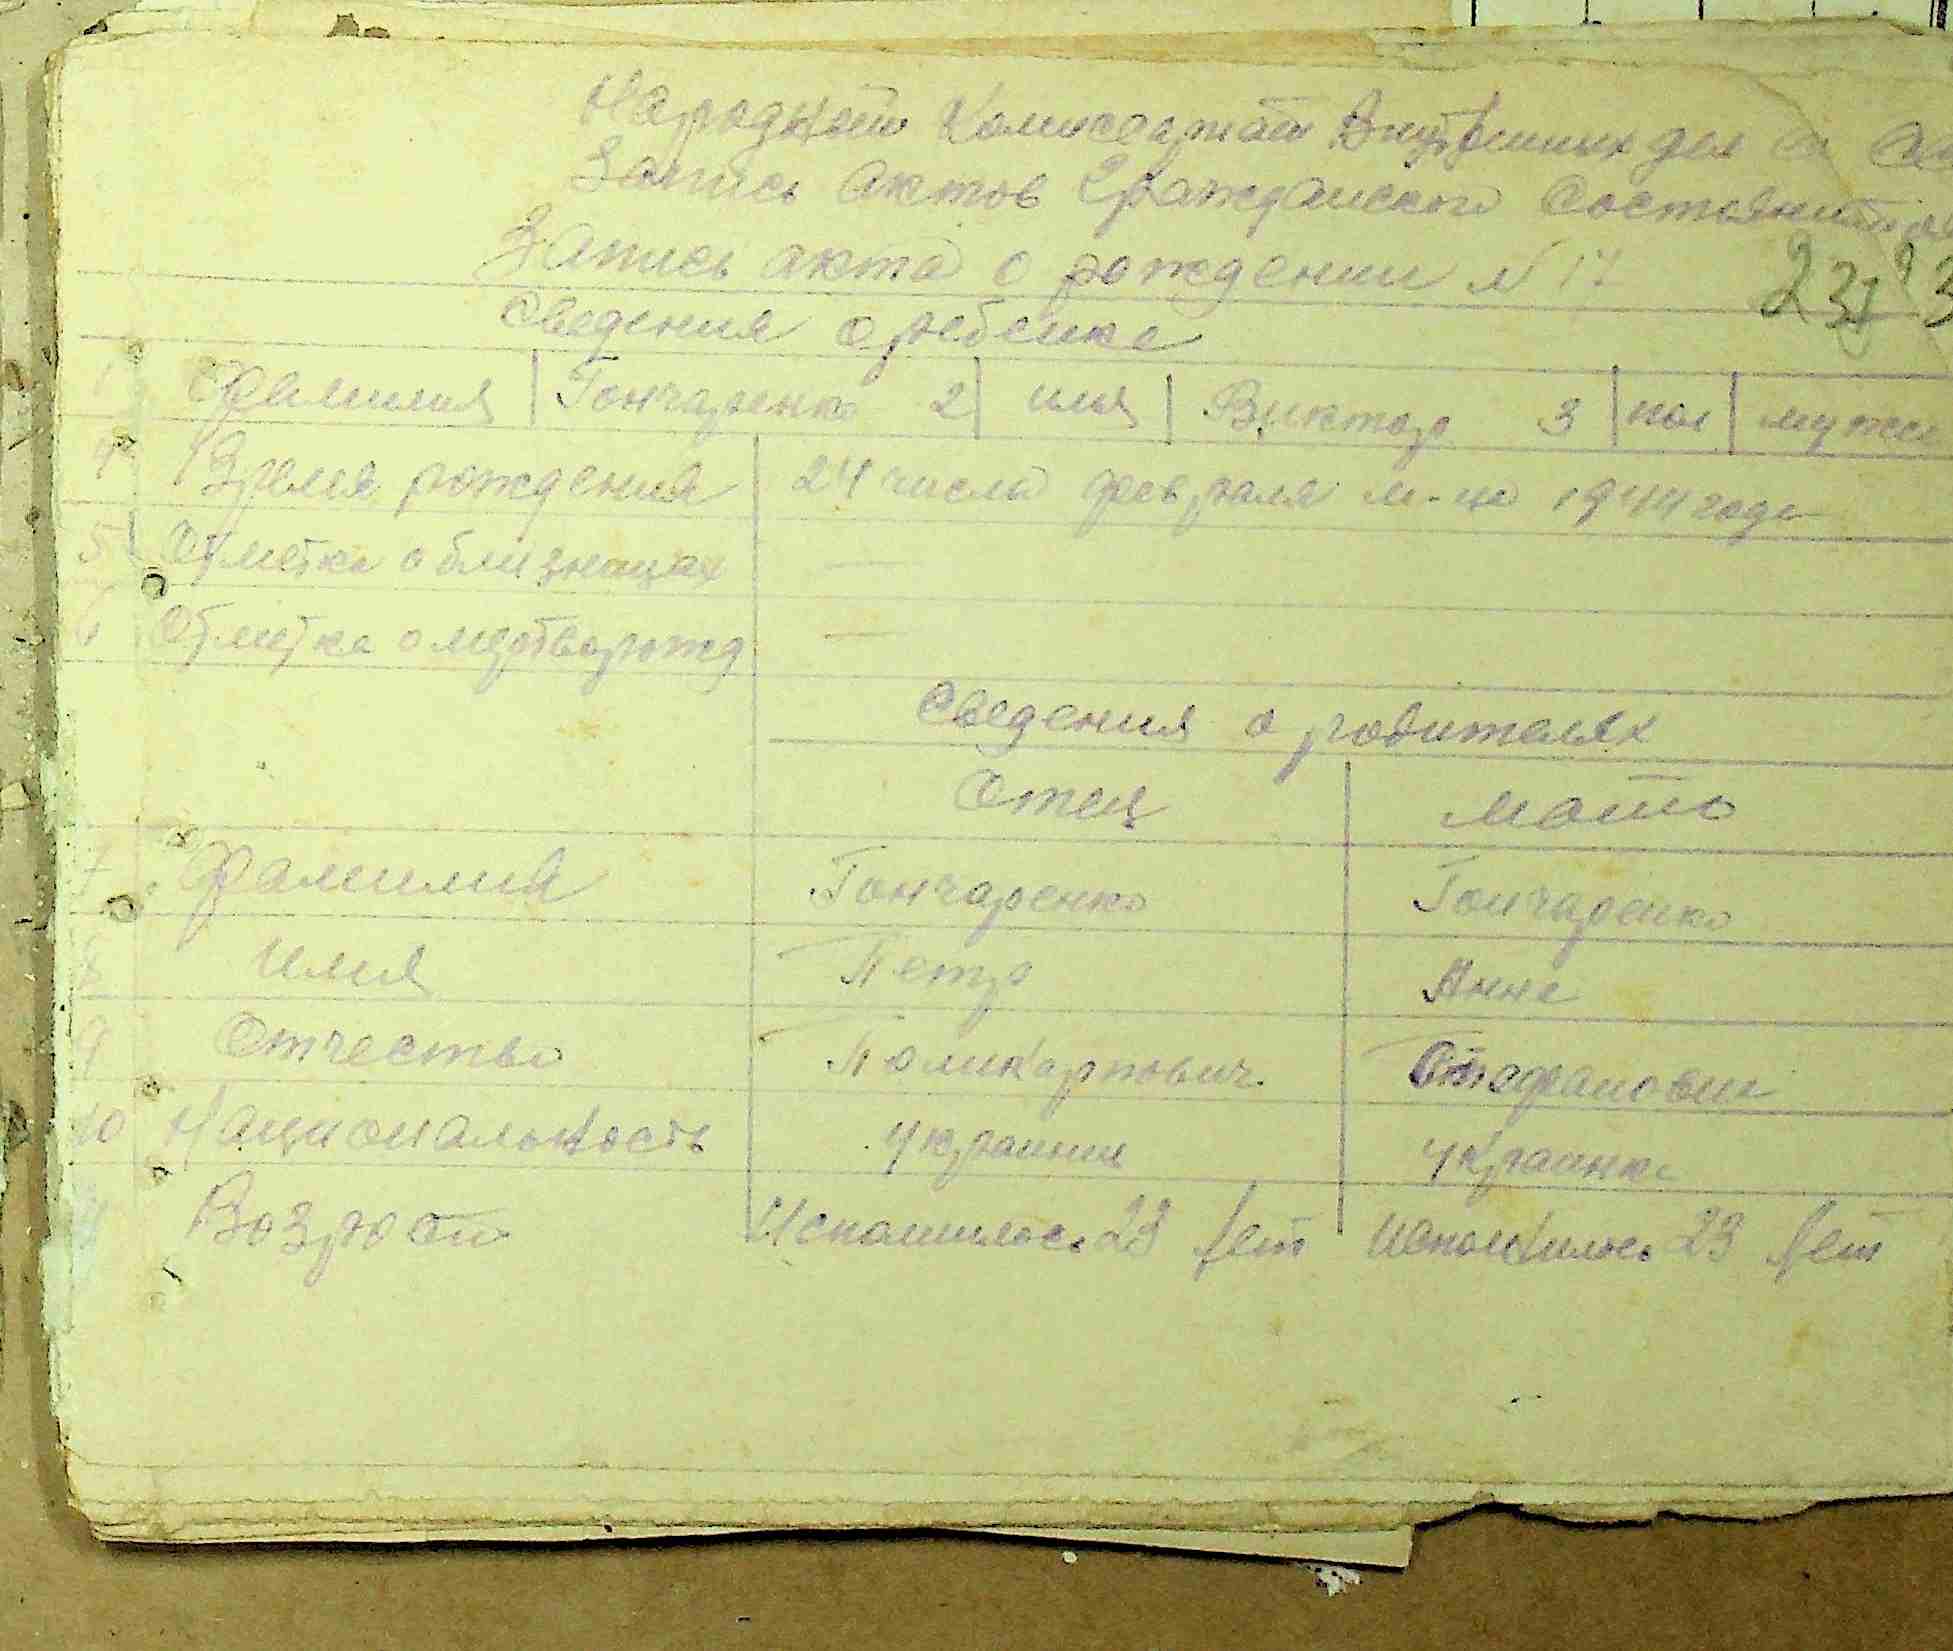 Народный Комиссариат Внутренних дел
Запись актов Гражданского Состояния
Запись акта о рождении N 17
Сведения о ребенке
1 Фамилия Гончаренко 2 имя Виктор 3 пол мужс
4 Время рождения 24 числа февраля м-ца 1944 года
5 Отметка о близнецах —
6 Отметка о мертворожд —
Сведения о родителях
Отец мать
7 Фамилия Гончаренко Гончаренко
8 Имя Петр Анна
9 Отчество Поликарпович Стефановн
10 Национальность украинец украинка
11 Возраст Исполнилось 23 лет Исполнилось 23 лет